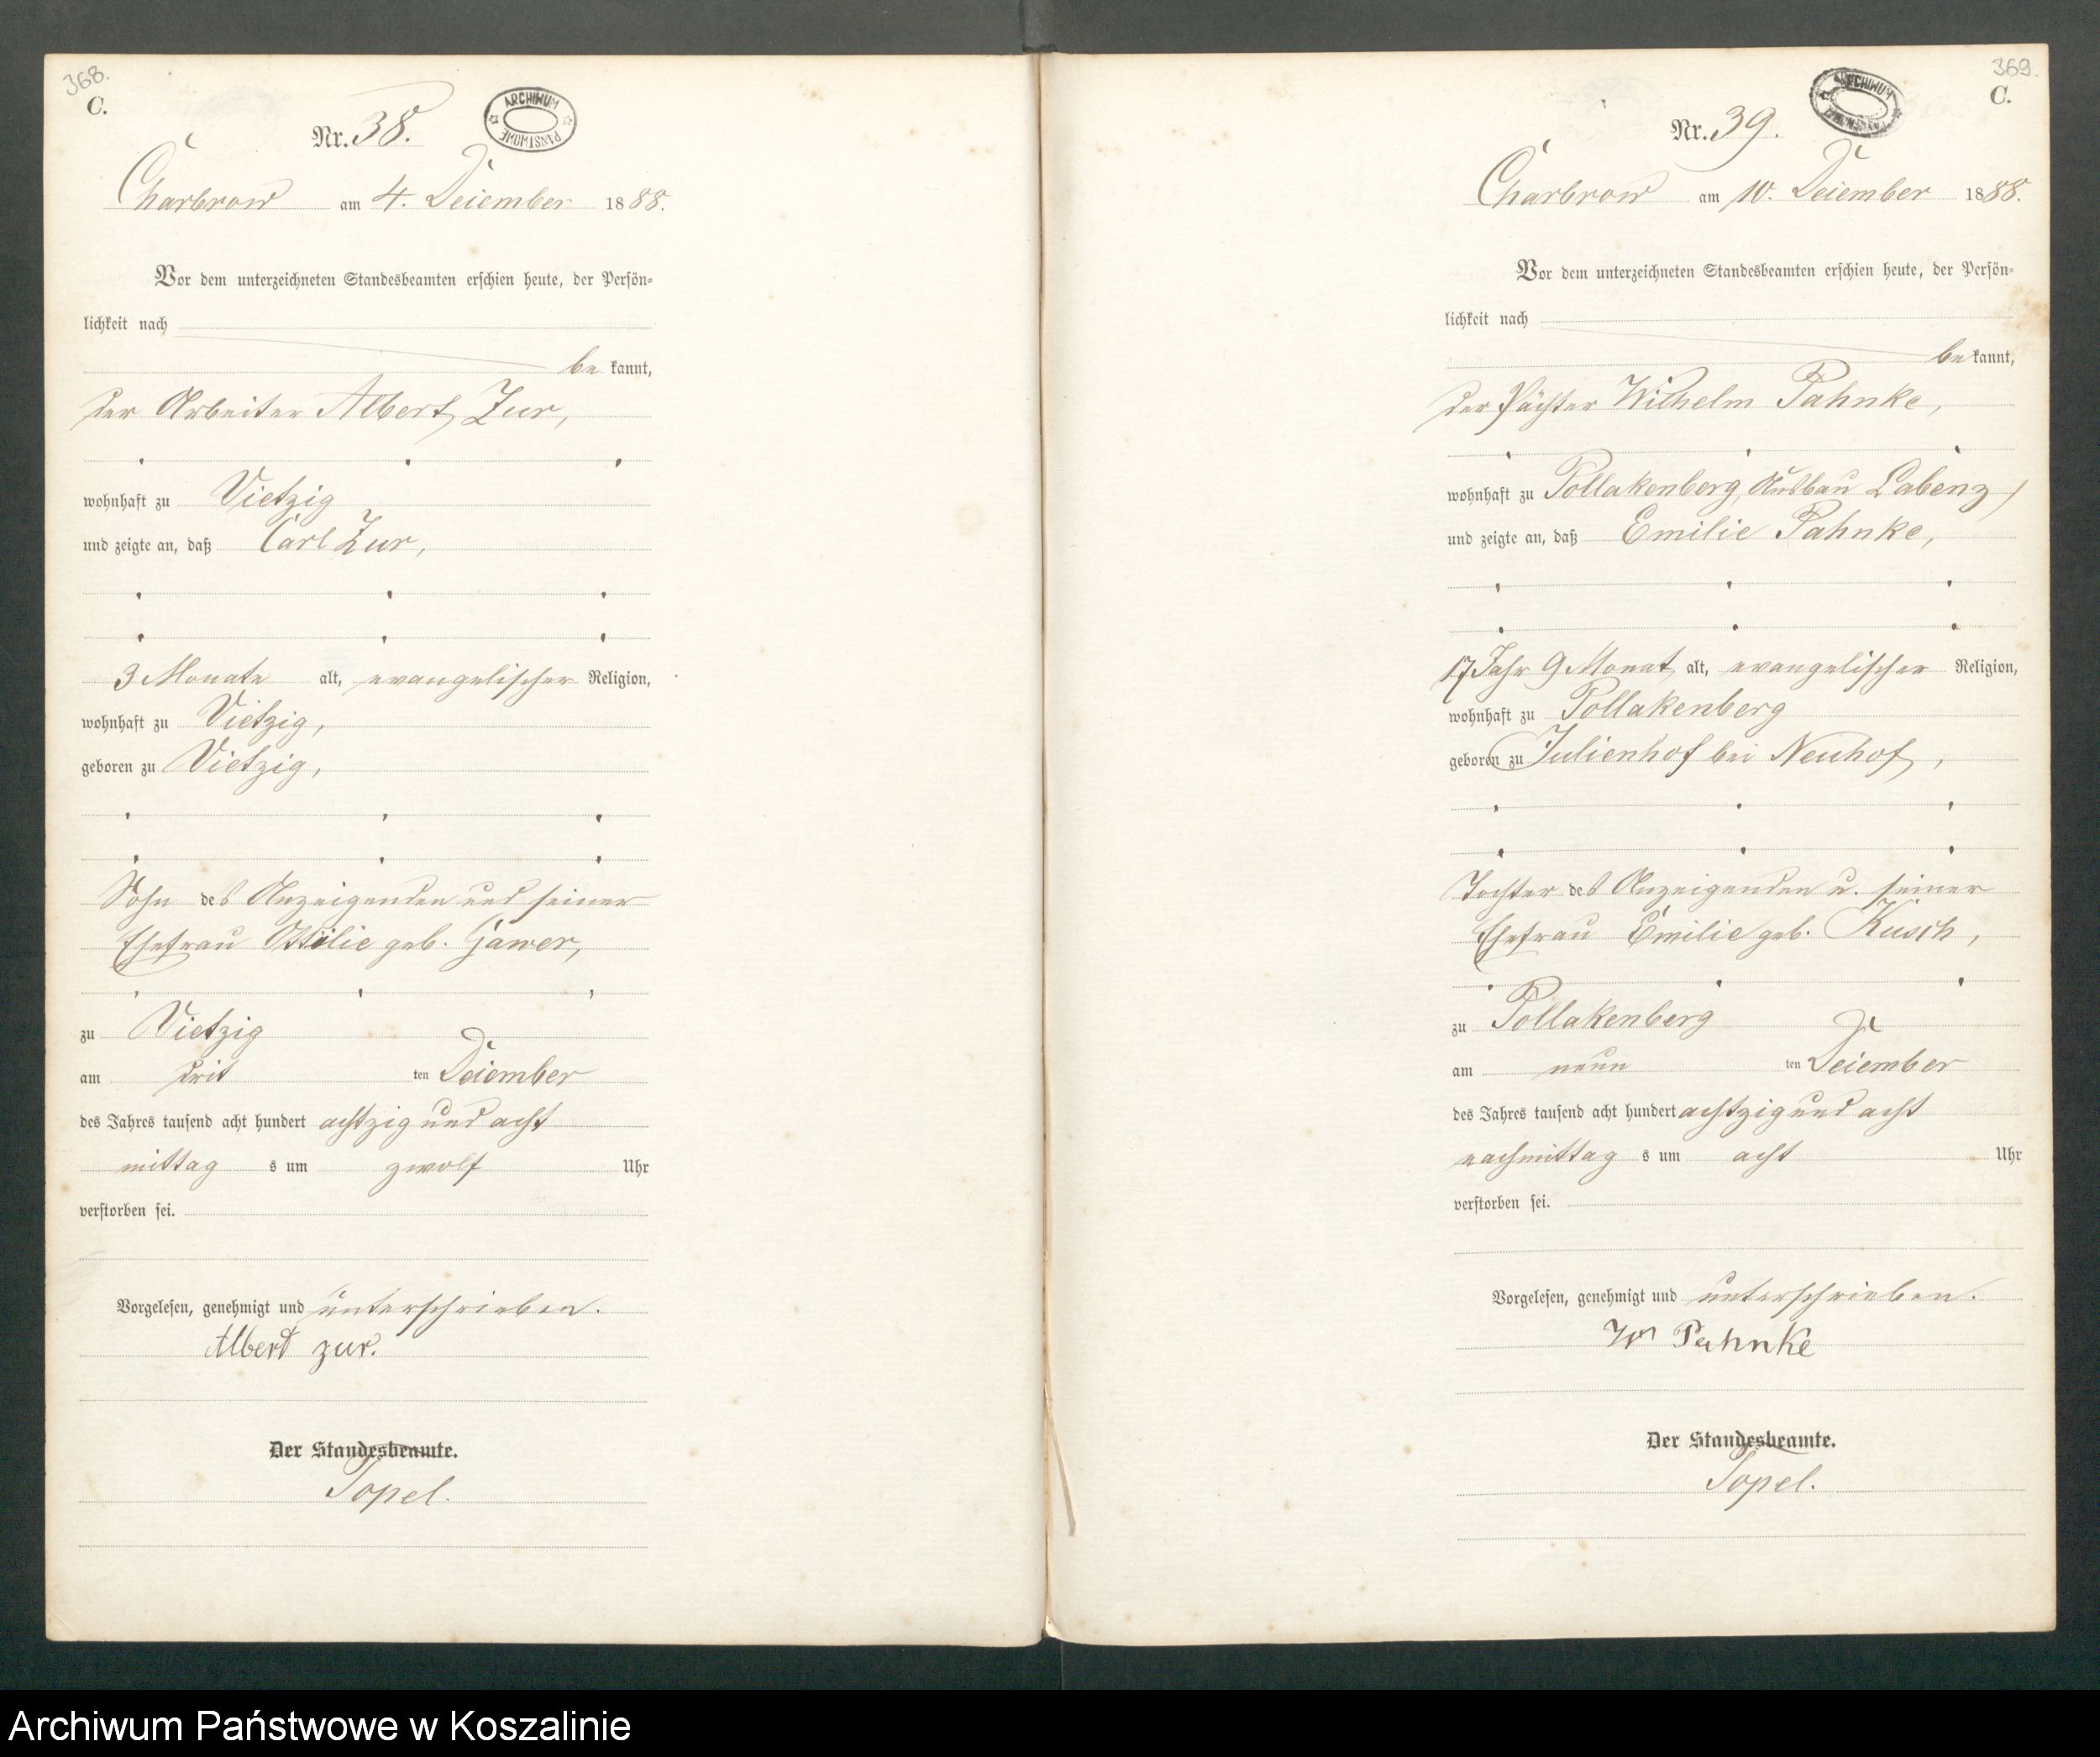 368.
C.
ARCHIWUM PAŃSTWOWE
Nr. 38.
Charbrow am 4. Dezember 1888.
Vor dem unterzeichneten Standesbeamten erschien heute, der Persön-
lichkeit nach
be kannt,
der Arbeiter Albert Zur,
wohnhaft zu Vietzig
und zeigte an, daß Carl Zur,
3 Monate alt, evangelischer Religion,
wohnhaft zu Vietzig,
geboren zu Vietzig,
Sohn des Anzeigenden und seiner
Ehefrau Ottilie geb. Gawer,
zu Vietzig
am drit ten Dezember
des Jahres tausend acht hundert achtzig und acht
mittag s um zwölf Uhr
verstorben sei.
Vorgelesen, genehmigt und unterschrieben.
Albert zur.
Der Standesbeamte.
Topel.
369.
C.
ARCHIWUM PAŃSTWOWE
Nr. 39.
Charbrow am 10. Dezember 1888.
Vor dem unterzeichneten Standesbeamten erschien heute, der Persön-
lichkeit nach
be kannt,
der Pächter Wilhelm Pahnke,
wohnhaft zu Pollakenberg, Ausbau Labenz,
und zeigte an, daß Emilie Pahnke,
17 Jahr 9 Monat alt, evangelischer Religion,
wohnhaft zu Pollakenberg
geboren zu Julienhof bei Neuhof,
Tochter des Anzeigenden u. seiner
Ehefrau Emilie geb. Kusch,
zu Pollakenberg
am neun ten Dezember
des Jahres tausend acht hundert achtzig und acht
nachmittag s um acht Uhr
verstorben sei.
Vorgelesen, genehmigt und unterschrieben.
W Pahnke
Der Standesbeamte.
Topel.
Archiwum Państwowe w Koszalinie